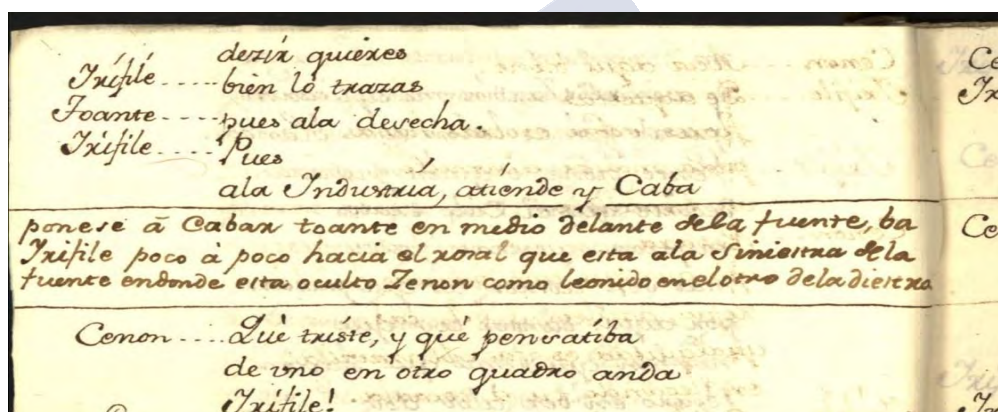 dezir quieres
Trifile ..... bien lo trazas
Toante ..... pues ala desecha.
Trifile .... Pues
ala Industria, atiende y Caba
ponese à Cabar toante en medio delante dela fuente, ba
Trifile poco à poco hacia el rosal que esta ala Siniestra dela
fuente endonde esta oculto Zenon como leonido en el otro dela diestra
Cenon .... Què triste, y què pensatiba
de vno en otro quadro anda
Trifile!
Ce
Tr
Ce